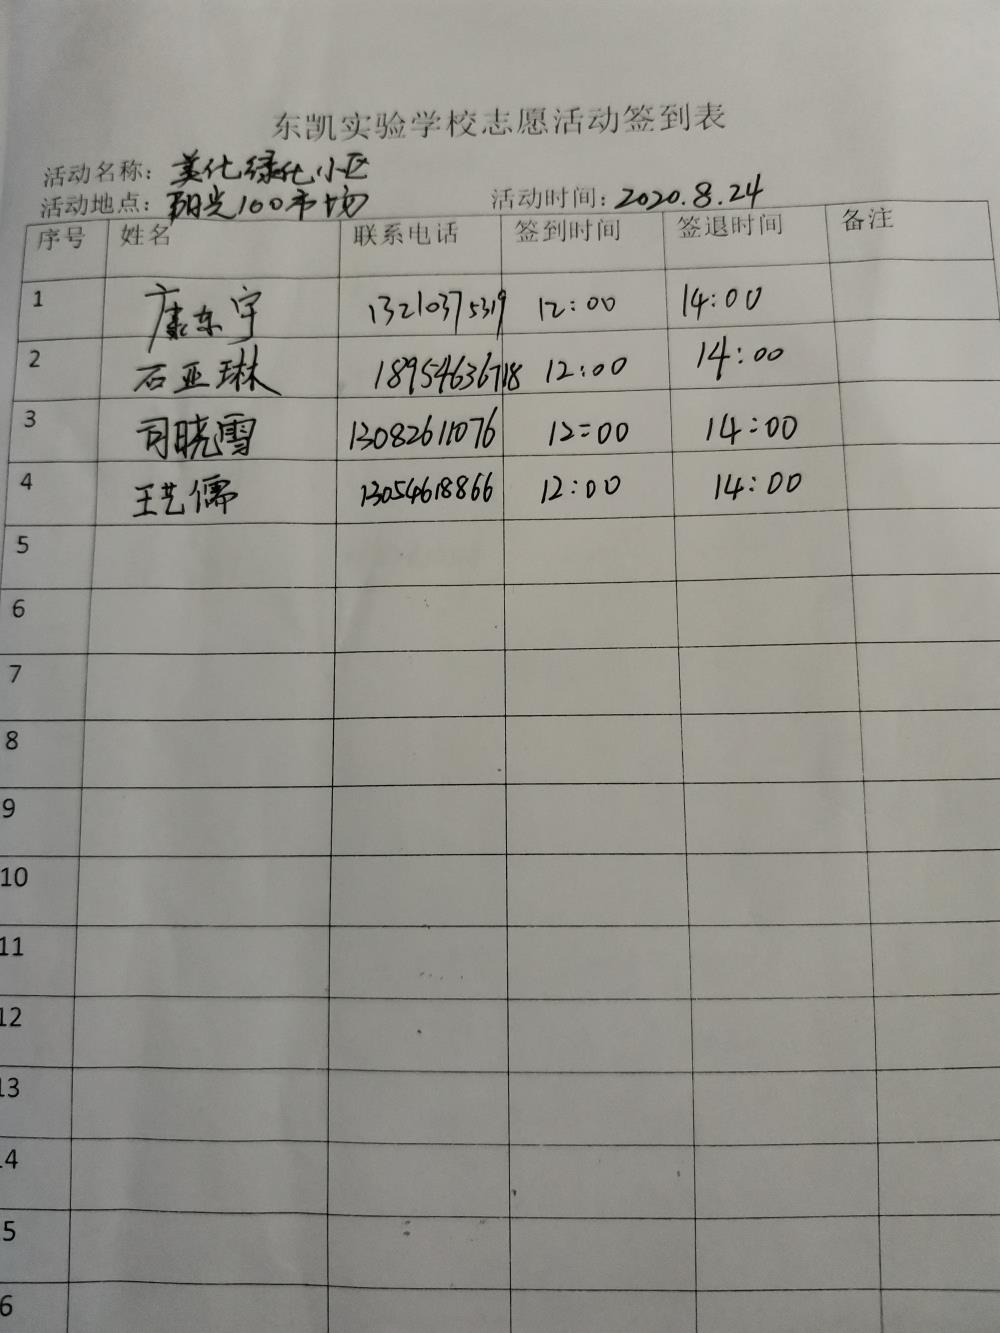 东凯实验学校志愿活动签到表
活动名称：美化绿化小区
活动地点：阳光100市场 活动时间：2020.8.24
序号 姓名 联系电话 签到时间 签退时间 备注
1 康东宇 13210375319 12:00 14:00
2 石亚琳 18954636718 12:00 14:00
3 司晓雪 13082611076 12:00 14:00
4 王艺儒 13054618866 12:00 14:00
5
6
7
8
9
10
11
12
13
14
15
16